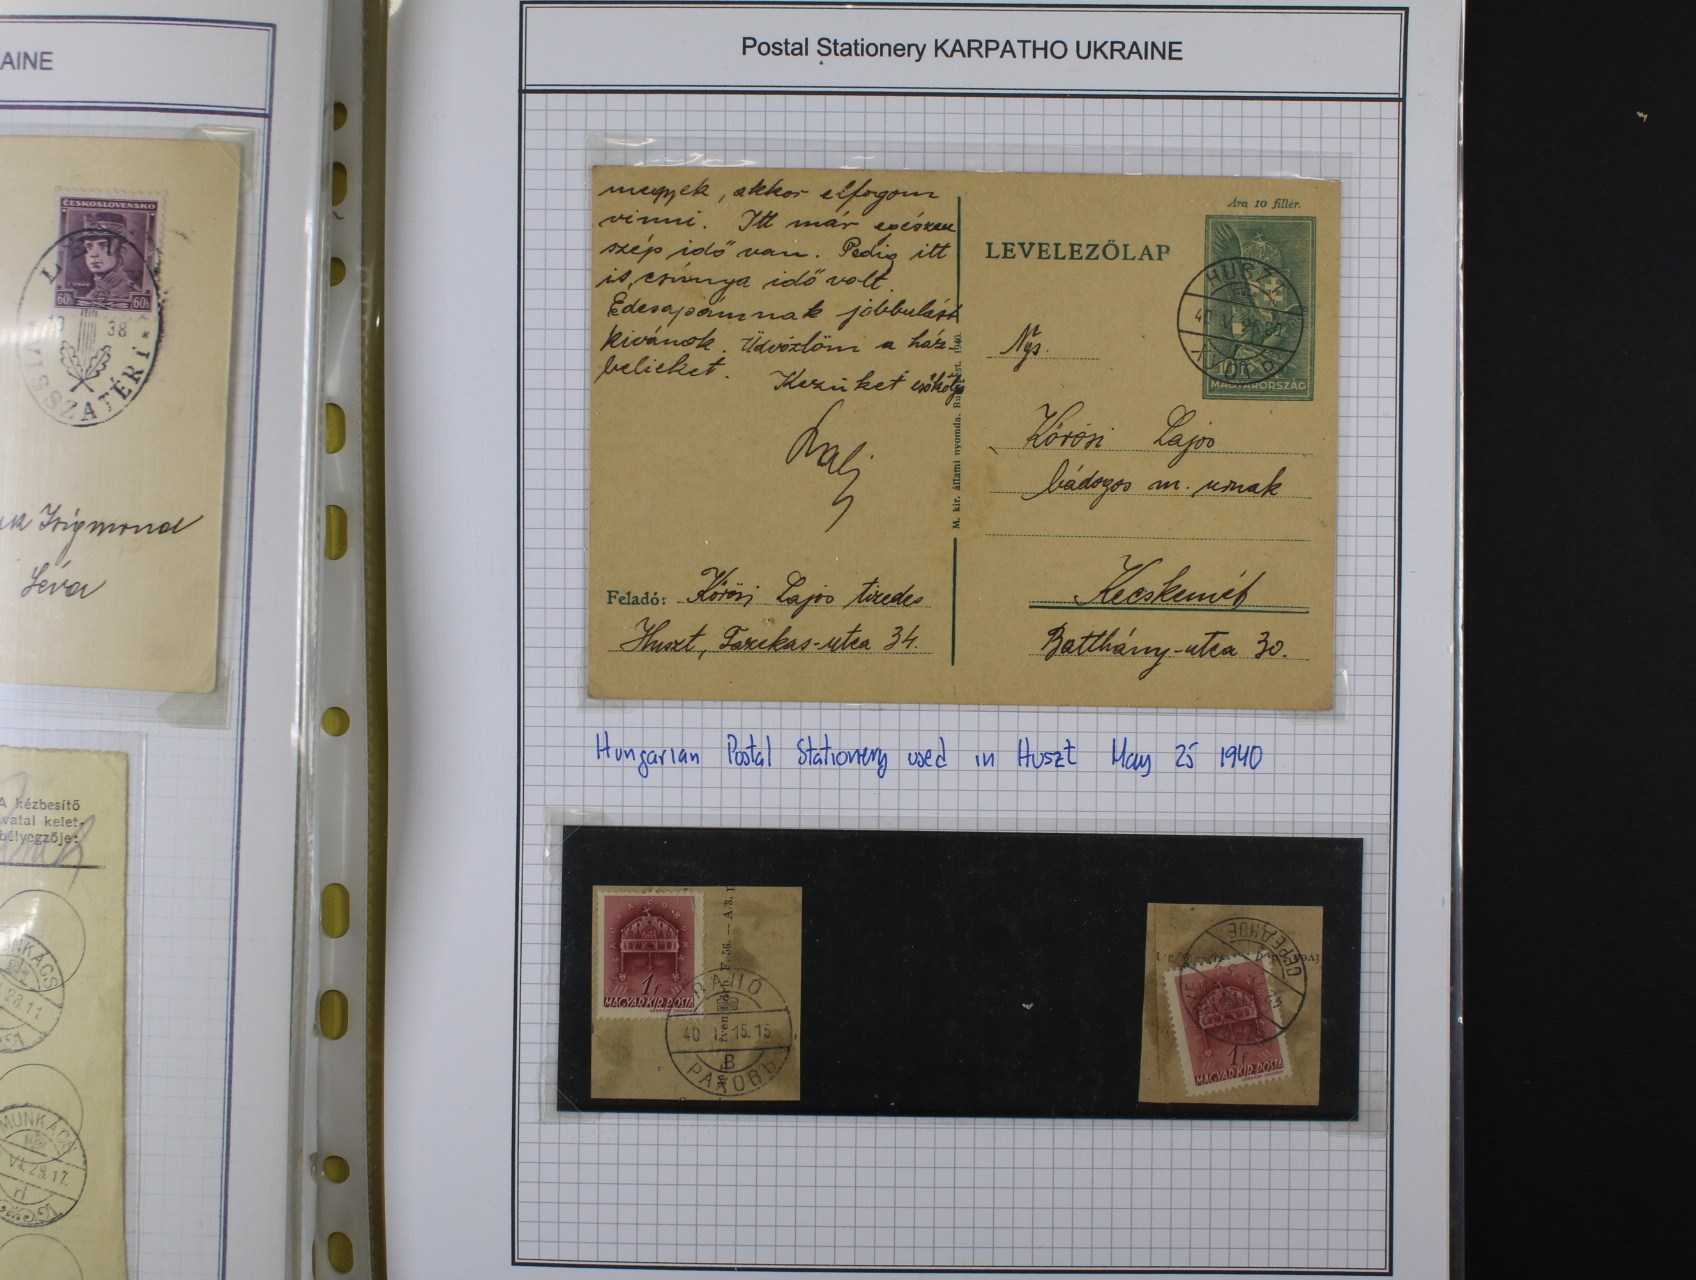 AINE
ČESKOSLOVENSKO
60h 60h
38
VISSZATÉRT
Zsigmond
Léva
A kézbesítő
vatal kelet-
bélyegzője:
MUNKÁCS
28.11
MUNKÁCS
VI.28.17.
Postal Stationery KARPATHO UKRAINE
megyek, akkor elfogom
vinni. Itt már egészen
szép idő van. Pedig itt
is csúnya idő volt.
Édesapámnak jobbulást
kivánok. Üdvözlöm a ház-
belieket. Kezüket csókolja
Lali
Feladó: Kőrösi Lajos tizedes
Huszt, Fazekas-utca 34.
M. kir. állami nyomda. Budapest. 1940.
Ára 10 fillér.
LEVELEZŐLAP
HUSZT
40 V.
ХУСТЪ
10 f
MAGYARORSZÁG
Ngs.
Kőrösi Lajos
bádogos m. urnak
Kecskemét
Batthány-utca 30.
Hungarian Postal Stationery used in Huszt May 25 1940
1f
MAGYAR KIR. POSTA
F. 56. — A/3.
RAHO
40 I. 15.15
B
РАХОВЪ
СЕРЕДНОЕ
1f
MAGYAR KIR. POSTA